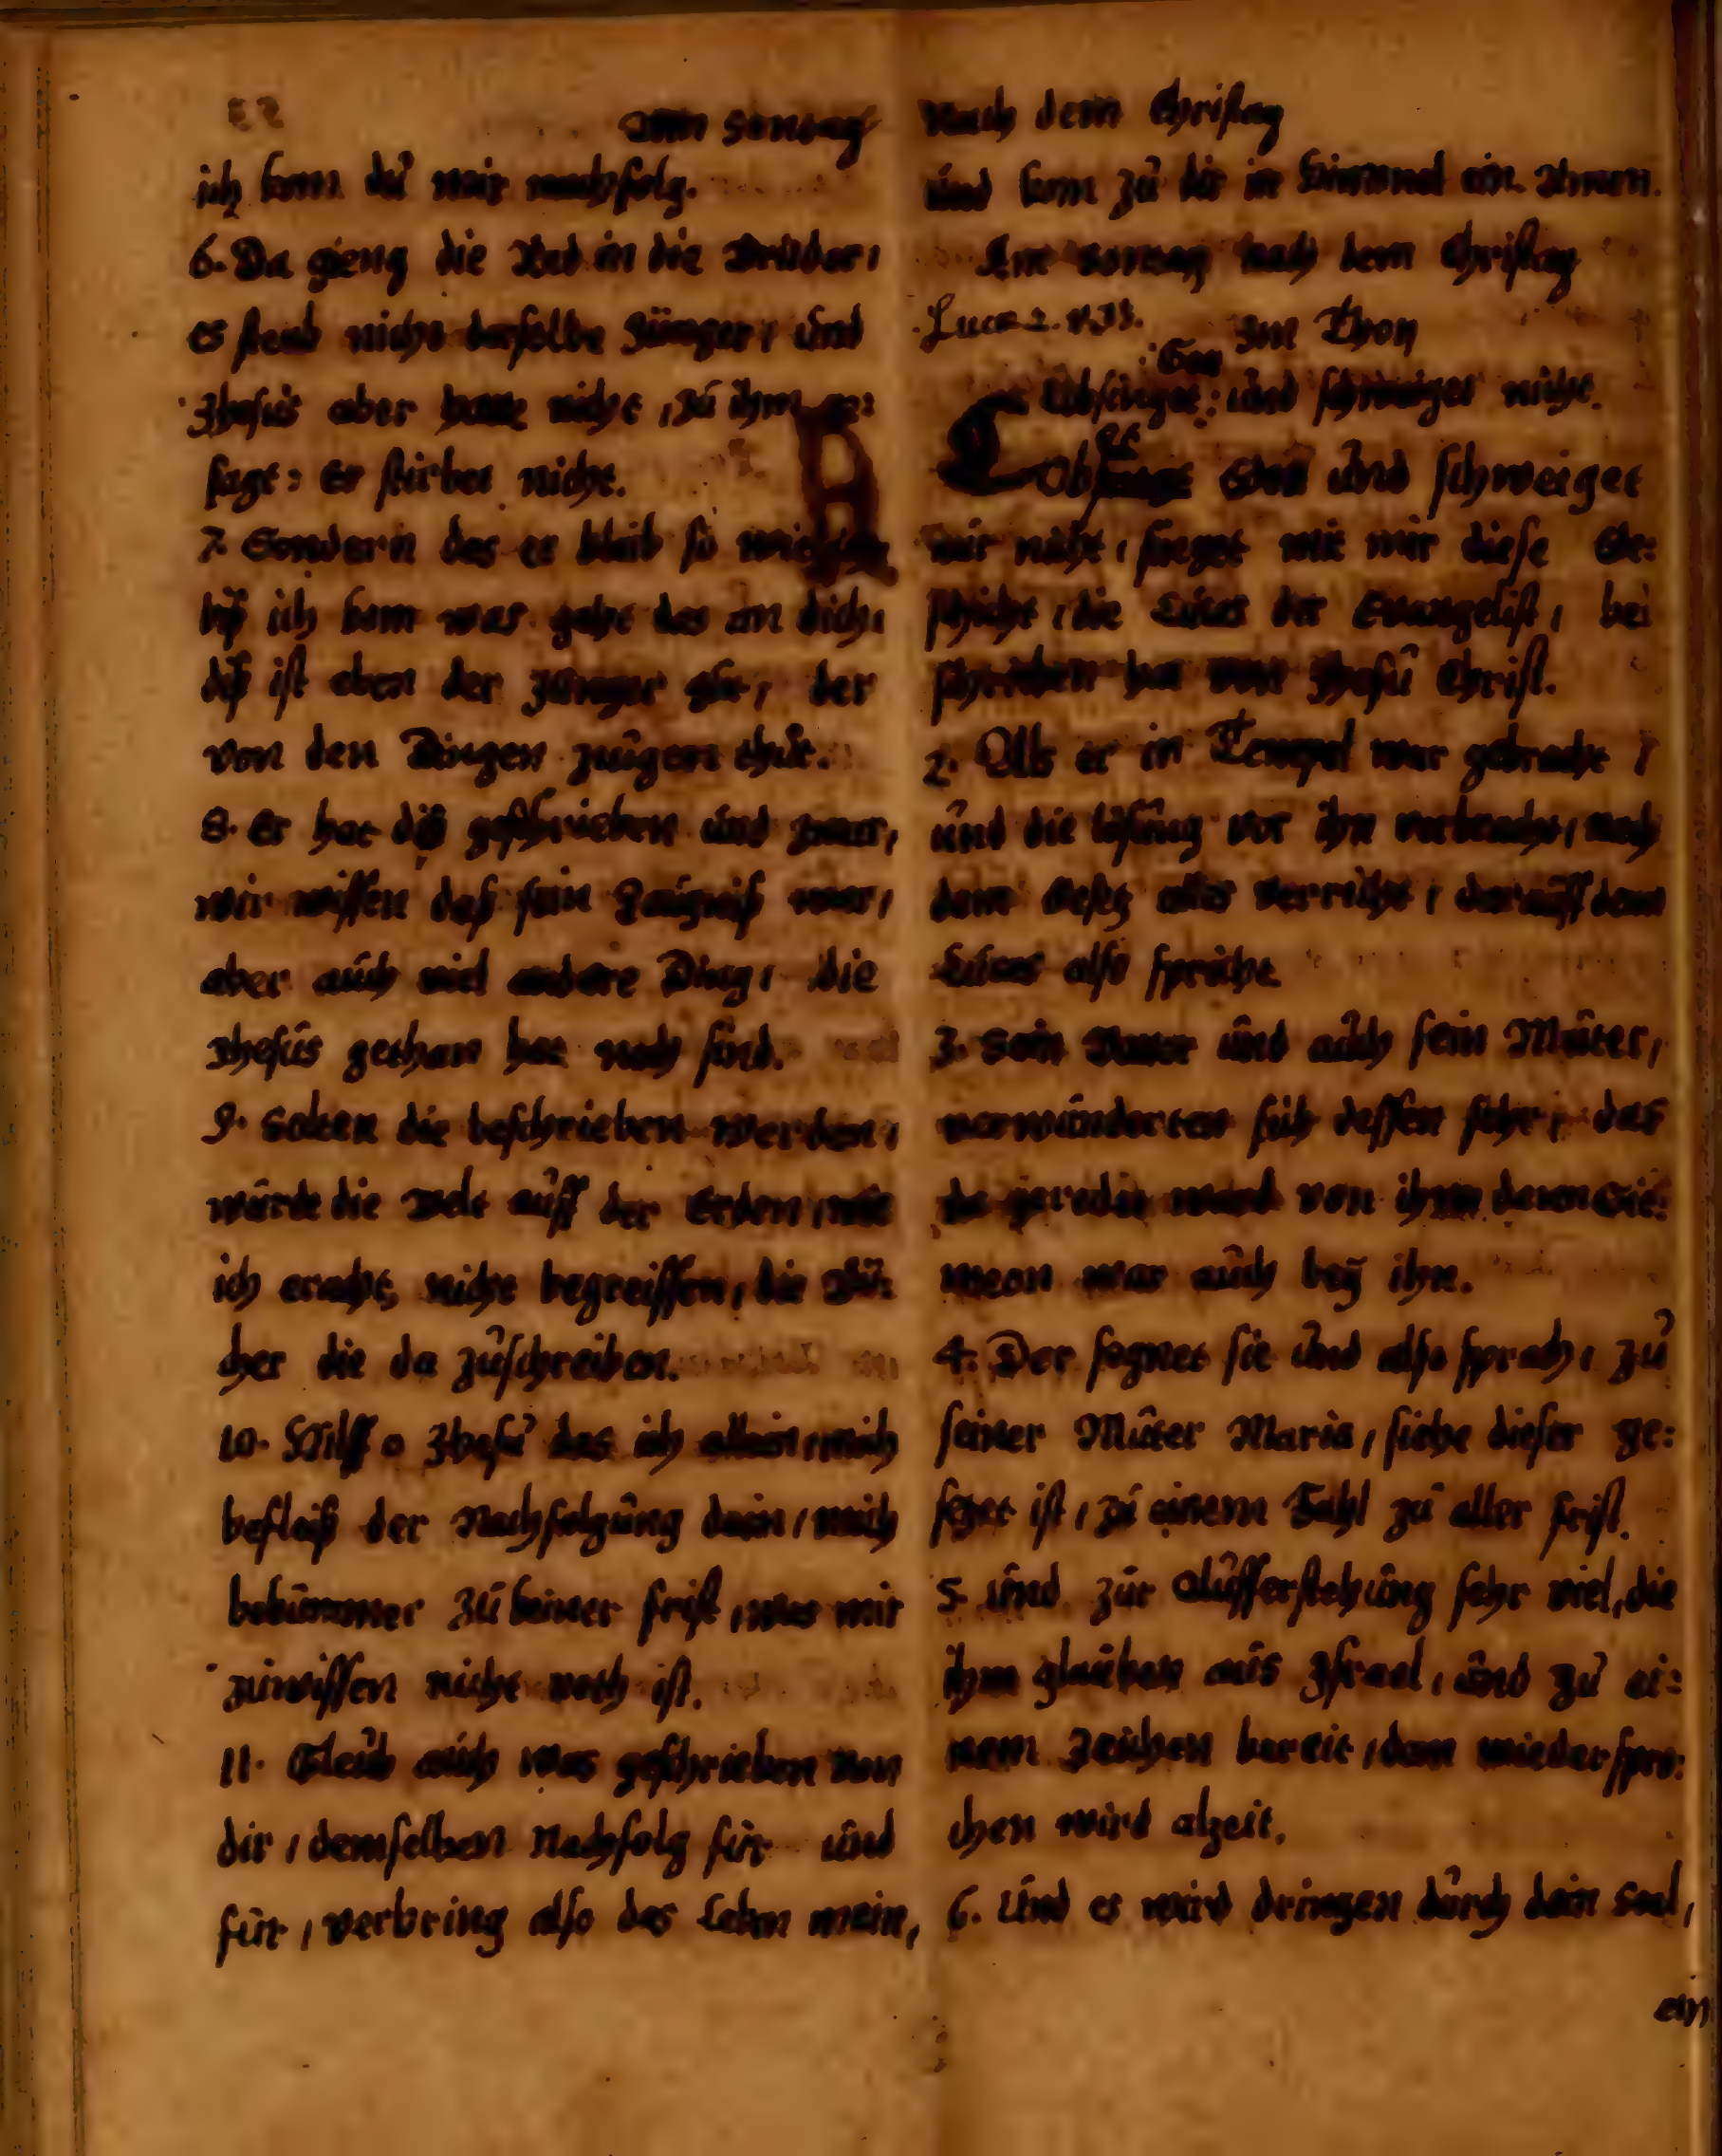 Am Sontag
ich kom du mir nachfolg.
6. Da gieng die Red in die Brüder,
es sterb nicht derselbe Jünger, und
Jhesus aber hatte nicht, zu ihm ge:
sagt: Er stirbet nicht.
7. Sondern das er bleib so
biß ich kom was geht das an dich,
diß ist eben der Jünger gůt, der
von den Dingen zeugen thut.
8. Er hat diß geschrieben und zwar,
wir wissen daß sein Zeugniß war,
aber auch viel andere Ding, die
Jhesus gethan hat noch sind.
9. Solten die beschrieben werden,
würde die Welt auff der Erden, wie
ich eracht, nicht begreiffen, die Bü:
cher die da zuschreiben.
10. Hilff o Jhesu das ich allein, mich
befleiß der Nachfolgung dein, mich
bekümmer zu keiner frist, was mir
zuwissen nicht noth ist.
11. Gleub auch was geschrieben von
dir, demselben Nachfolg für und
für, verbring also das Leben mein,
Nach dem Christag
und kom zu dir in Himmel ein. Amen.
Am Sontag nach dem Christag
Luce 2. v 33. Im Thon
Gott
Lobsinget: und schweiget nicht.
Lobsinget Gott und schweiget
mir nicht, singet mit mir diese Ge:
schicht, die Lucas der Evangelist, be:
schrieben hat von Jhesu Christ.
2. Als er in Tempel war gebracht,
und die lösung vor ihn verbracht, nach
dem Gesetz alles verricht, darauff denn
Lucas also spricht.
3. Sein Vatter und auch sein Muter,
verwunderten sich dessen sehr, das
da geredet ward von ihm denn Sie:
meon war auch beÿ ihn.
4. Der segnet sie und also sprach, zu
seiner Muter Maria, siehe dieser ge:
setzet ist, zu einem Fahl zu aller frist.
5. Und zur Aufferstehung sehr viel, die
ihm glauben aus Jsrael, und zu ei:
nem Zeichen bereit, dem wiederspro:
chen wird alzeit.
6. Und es wird dringen durch dein Seel,
ein